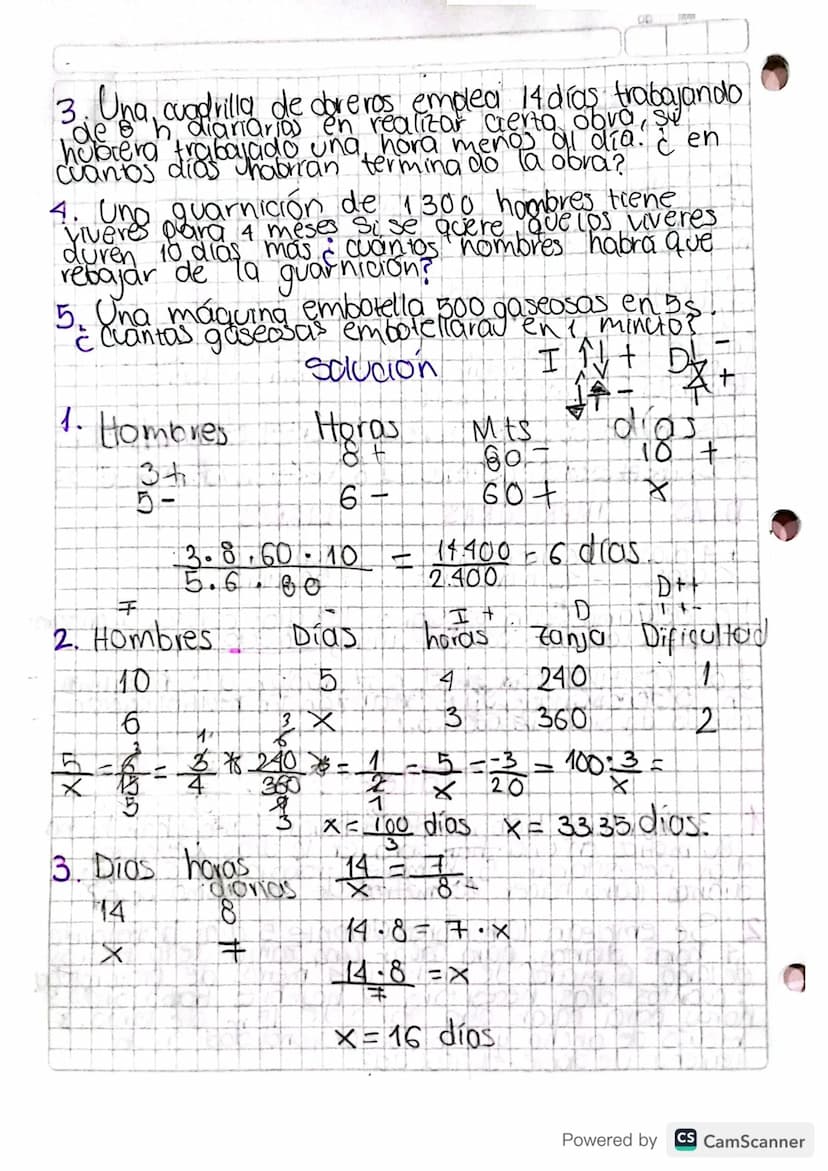 3. Una cuadrilla de obreros emplea 14 días trabajando
de 8 h dianarias en realizar cierta obra, si
hubiera trabajado una hora menos al día. ¿ en
cuantos días habrían terminado la obra?
4. Una guarnición de 1300 hombres tiene
viveres para 4 meses si se quiere que los viveres
duren 10 días más ¿ cuántos hombres habrá que
rebajar de la guarnición?
5. Una máquina embotella 500 gaseosas en 5s.
¿ Cuantas gaseosas embotellara en 1 minuto?
Solución
I ↑↓ + D↓ -
↓↑ - +
1. Hombres Horas Mts días
3+ 8+ 80- 10 +
5- 6- 60+ x
3.8.60.10 / 5.6.80 = 14.400 / 2.400 = 6 días.
D++
I + D
2. Hombres Días horas Zanja Dificultad
10 5 4 240 1
6 x 3 360 2
5/x = 6/15 = 3/4 * 240/360 = 1/2 = 5/x = -3/20 = 100:3/x =
x = 100/3 días x = 33.35 días.
3. Días horas diarias
14 8
x 7
14/x = 7/8
14.8 = 7.x
14.8/7 = x
x = 16 días
Powered by CS CamScanner